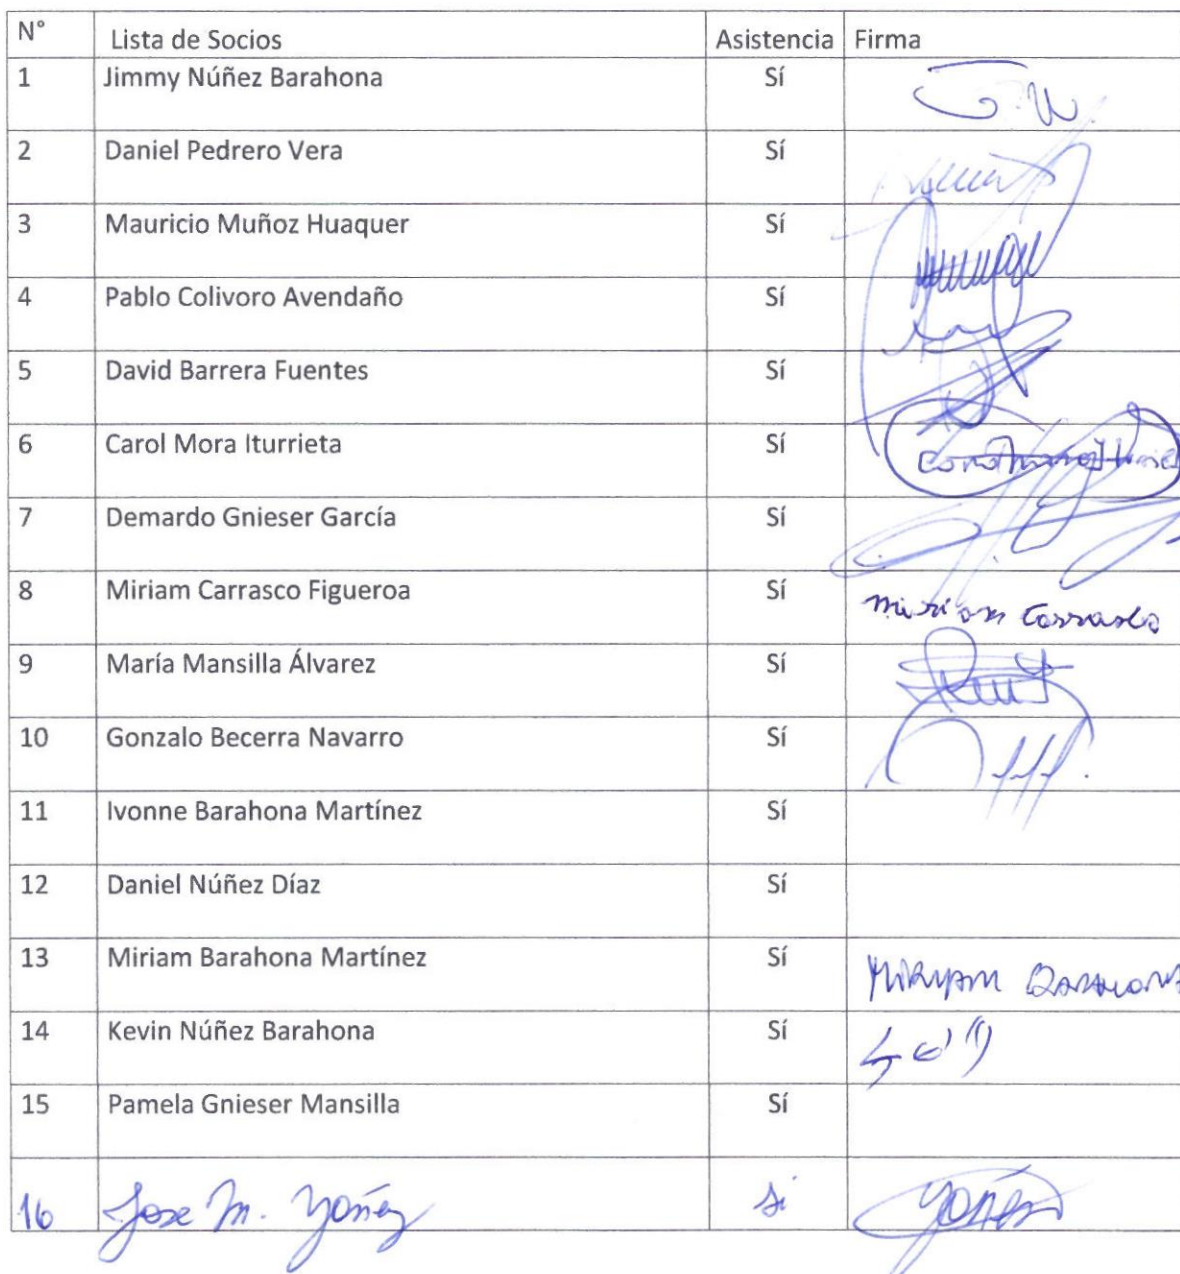 N° Lista de Socios Asistencia Firma
1 Jimmy Núñez Barahona Sí
2 Daniel Pedrero Vera Sí
3 Mauricio Muñoz Huaquer Sí
4 Pablo Colivoro Avendaño Sí
5 David Barrera Fuentes Sí
6 Carol Mora Iturrieta Sí
7 Demardo Gnieser García Sí
8 Miriam Carrasco Figueroa Sí Miriam Carrasco
9 María Mansilla Álvarez Sí
10 Gonzalo Becerra Navarro Sí
11 Ivonne Barahona Martínez Sí
12 Daniel Núñez Díaz Sí
13 Miriam Barahona Martínez Sí Miryam Barahona
14 Kevin Núñez Barahona Sí
15 Pamela Gnieser Mansilla Sí
16 Jose M. Yañez si Yañez